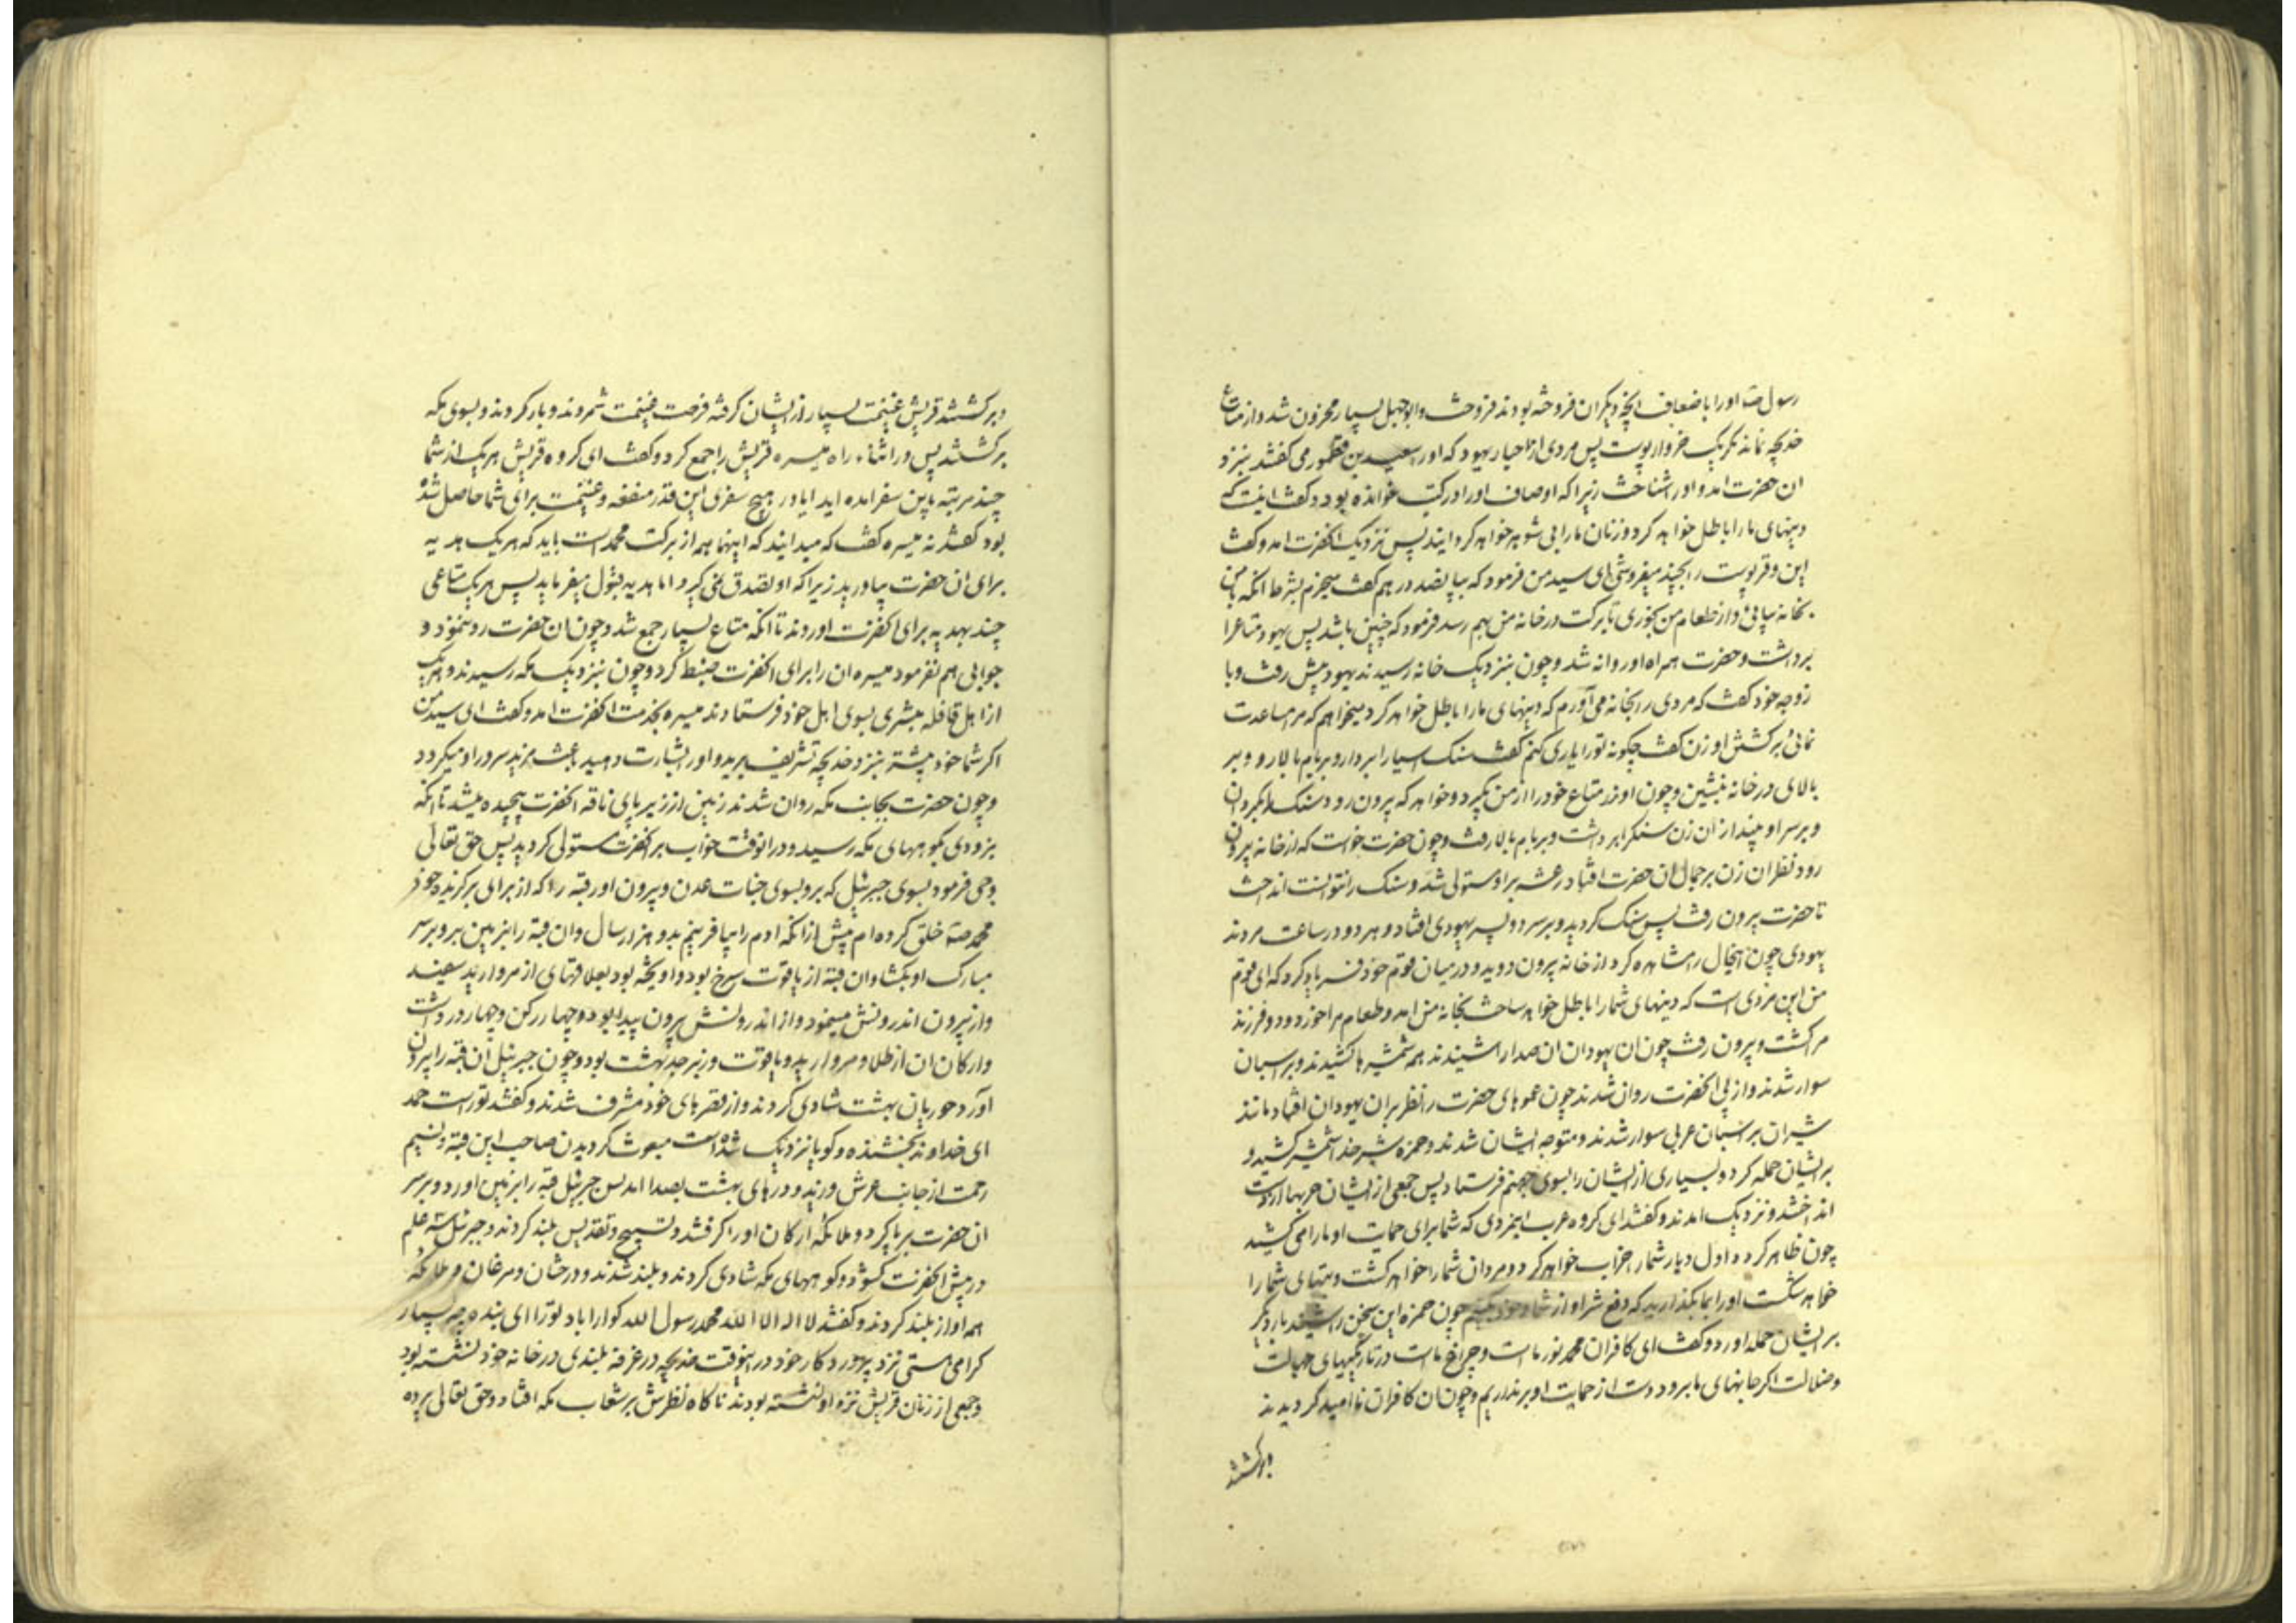 رسول ص اورا باضعاف انچه دیکران فروخته بودند فروخت و ابوجهل بسیار محزون شد و از متاع
خدیجه نماند مکر یک خروار پوست پس مردی از احبار یهود که اورا سعید بن قطمور می کفتند بنزد
ان حضرت امد و اورا شناخت زیرا که اوصاف اورا در کتب خوانده بود و کفت اینست که
دینهای مارا باطل خواهد کرد و زنان مارا بی شوهر خواهد کردانید پس نزدیک انحضرت امد و کفت
این وقر پوست را بچند میفروشی ای سید من فرمود که بپانصد درهم کفت میخرم بشرط انکه با من
بخانه بیائی و از طعام من بخوری تا برکت در خانه من بهم رسد فرمود که چنین باشد پس یهود متاعرا
برداشت و حضرت همراه او روانه شد و چون بنزدیک خانه رسیدند یهود پیش رفت و با
زوجه خود کفت که مردی را بخانه می آورم که دینهای مارا باطل خواهد کرد میخواهم که مرا مساعدت
نمائی بر کشتن او زن کفت چکونه تورا یاری کنم کفت سنک اسیارا بردار و بر بام بالا رو و بر
بالای در خانه بنشین و چون او زر متاع خودرا از من بکیرد و خواهد که بیرون رود سنک را بکردان
و بر سر او بینداز ان زن سنکرا برداشت و بر بام بالا رفت و چون حضرت خواست که از خانه بیرون
رود نظر ان زن بر جمال ان حضرت افتاد رعشه بر او مستولی شد و سنک را نتوانست انداخت
تا حضرت بیرون رفت پس سنک کردید و بر سر دو پسر یهودی افتاد و هر دو در ساعت مردند
یهودی چون اینحال را مشاهده کرد از خانه بیرون دوید و در میان قوم خود فریاد کرد که ای قوم
من این مردی است که دینهای شمارا باطل خواهد ساخت بخانه من امد و طعام مرا خورد و دو فرزند
مرا کشت و بیرون رفت چون ان یهودان ان صدارا شنیدند همه شمشیرها کشیدند و بر اسبان
سوار شدند و از پی انحضرت روان شدند چون عموهای حضرت را نظر بران یهودان افتاد مانند
شیران بر اسبان عربی سوار شدند و متوجه ایشان شدند و حمزه شیر خدا شمشیر کشید و
بر ایشان حمله کرد و بسیاری از ایشان را بسوی جهنم فرستاد پس جمعی از ایشان حربها از دست
انداختند و نزدیک امدند و کفتند ای کروه عرب اینمردی که شما برای حمایت او مارا می کشید
چون ظاهر کردد اول دیار شمارا خراب خواهد کرد و مردان شمارا خواهد کشت و بتهای شمارا
خواهد شکست اورا بما بکذارید که دفع شر او از شما و خود بکنیم چون حمزه این سخن را شنید بار دیکر
بر ایشان حمله اورد و کفت ای کافران محمد نور ماست و چراغ ماست در تاریکیهای جهالت
و ضلالت اکر جانهای ما برود دست از حمایت او برنداریم و چون ان کافران نا امید کردیدند
و برکشتند
و برکشتند قریش غنیمت بسیار از ایشان کرفته فرصت غنیمت شمردند و بار کردند و بسوی مکه
برکشتند پس در اثناء راه میسره قریش را جمع کرد و کفت ای کروه قریش هریک از شما
چند مرتبه باین سفر امده اید ایا در هیچ سفری این قدر منفعه و غنیمت برای شما حاصل شده
بود کفتند نه میسره کفت که میدانید که اینها همه از برکت محمد است باید که هر یک هدیه
برای ان حضرت بیاورید زیرا که او تصدق نمی کیرد اما هدیه قبول میفرماید پس هر یک متاعی
چند بهدیه برای انحضرت اوردند تا انکه متاع بسیار جمع شد و چون ان حضرت رد ننمود و
جوابی هم نفرمود میسره ان را برای انحضرت ضبط کرد و چون بنزدیک مکه رسیدند و هریک
از اهل قافله مبشری بسوی اهل خود فرستادند میسره بخدمت انحضرت امد و کفت ای سید من
اکر شما خود پیشتر بنزد خدیجه تشریف برید و اورا بشارت دهید باعث مزید سرور او میکردد
و چون حضرت بجانب مکه روان شدند زمین از زیر پای ناقه انحضرت پیچیده میشد تا انکه
بزودی بکوههای مکه رسید و در انوقت خواب بر انحضرت مستولی کردید پس حق تعالی
وحی فرمود بسوی جبرئیل که برو بسوی جنات عدن و بیرون اور قبه را که از برای برکزیده خود
محمد ص خلق کرده ام پیش از انکه ادم را بیافرینم بدو هزار سال و ان قبه را بزمین ببر و بر سر
مبارک او بکشا و ان قبه از یاقوت سرخ بود و اویخته بود بعلاقهای از مروارید سفید
و از بیرون اندرونش مینمود و از اندرونش بیرون پیدا بود و چهار رکن و چهار در داشت
و ارکان ان از طلا و مروارید و یاقوت و زبرجد بهشت بود و چون جبرئیل ان قبه را بیرون
آورد حوریان بهشت شادی کردند و از قصرهای خود مشرف شدند و کفتند تورا است حمد
ای خداوند بخشنده و کویا نزدیک شده است مبعوث کردیدن صاحب این قبه و نسیم
رحمت از جانب عرش وزید و درهای بهشت بصدا امد پس جبرئیل قبه را بزمین اورد و بر سر
ان حضرت برپا کرد و ملائکه ارکان اورا کرفتند و تسبیح و تقدیس بلند کردند و جبرئیل سه علم
در پیش انحضرت کشود و کوههای مکه شادی کردند و بلند شدند و درختان و مرغان و ملائکه
همه اواز بلند کردند و کفتند لا اله الا الله محمد رسول الله کوارا باد تورا ای بنده چه بسیار
کرامی هستی نزد پروردکار خود در اینوقت خدیجه در غرفه بلندی در خانه خود نشسته بود
و جمعی از زنان قریش نزد او نشسته بودند ناکاه نظرش بر شعاب مکه افتاد و حق تعالی پرده